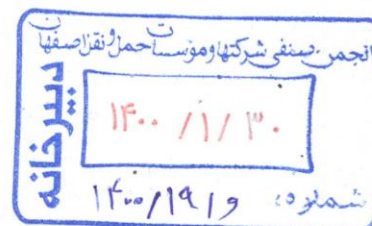 انجمن صنفی شرکتها و مؤسسات حمل و نقل اصفهان
دبیرخانه
۱۴۰۰ /۱/ ۳۰
شماره: و/۱۹/۱۴۰۰